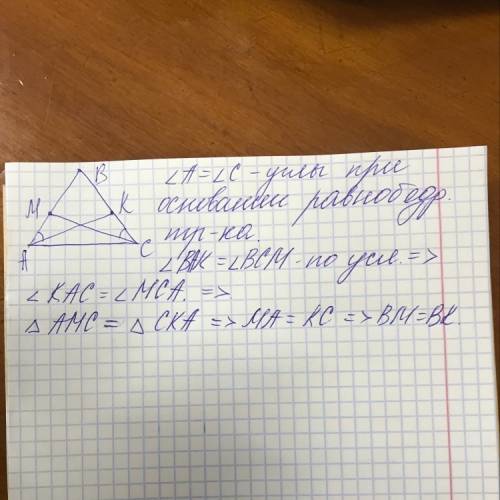 B
M
K
A
C
∠A=∠C - углы при
основании равнобедр.
тр-ка
∠BAK = ∠BCM - по усл. =>
∠KAC = ∠MCA. =>
△AMC = △CKA => MA = KC => BM=BK.